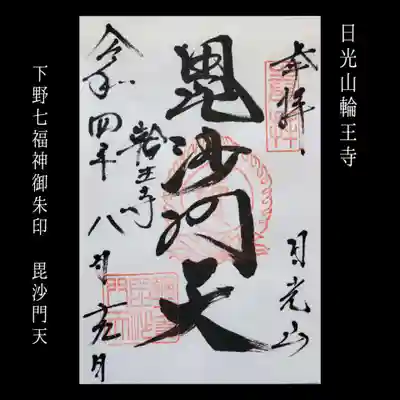 日光山輪王寺
奉拝
日光山
毘沙門天
輪王寺
令和四年八月
下野七福神御朱印 毘沙門天